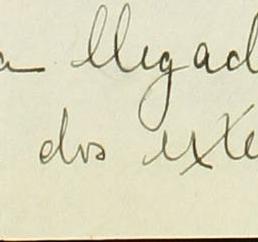 a llegad
dos exte